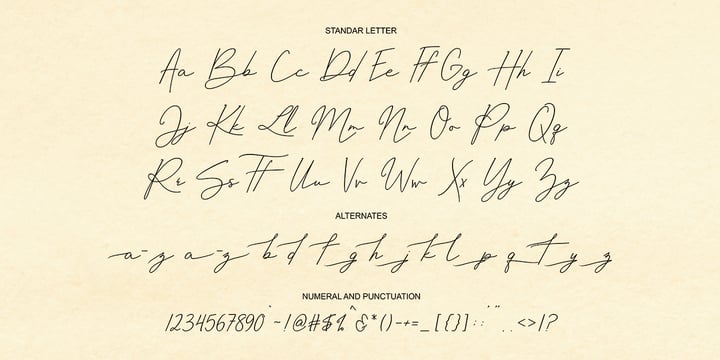 STANDAR LETTER
Aa Bb Cc Dd Ee Ff Gg Hh Ii
Jj Kk Ll Mm Nn Oo Pp Qq
Rr Ss Tt Uu Vv Ww Xx Yy Zz
ALTERNATES
a-z a-z b d f g h j k l p q t y z
NUMERAL AND PUNCTUATION
1234567890 ` ~ ! @ # $ % ^ & * ( ) - + = _ [ { } ] : ; ' " , . < > / ?